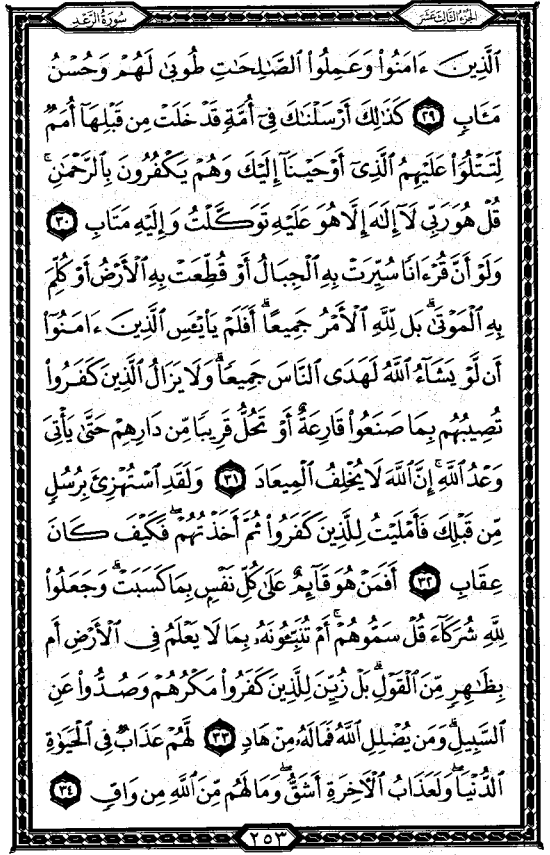 سُورَةُ الرَّعْدِ
الجُزْءُ الثَّالِثَ عَشَرَ
الَّذِينَ ءَامَنُوا۟ وَعَمِلُوا۟ الصَّالِحَاتِ طُوبَىٰ لَهُمْ وَحُسْنُ
مَـَٔابٍ ٢٩ كَذَٰلِكَ أَرْسَلْنَاكَ فِىٓ أُمَّةٍ قَدْ خَلَتْ مِن قَبْلِهَآ أُمَمٌ
لِّتَتْلُوَا۟ عَلَيْهِمُ الَّذِىٓ أَوْحَيْنَآ إِلَيْكَ وَهُمْ يَكْفُرُونَ بِالرَّحْمَٰنِ ۚ
قُلْ هُوَ رَبِّى لَآ إِلَٰهَ إِلَّا هُوَ عَلَيْهِ تَوَكَّلْتُ وَإِلَيْهِ مَتَابِ ٣٠
وَلَوْ أَنَّ قُرْءَانًا سُيِّرَتْ بِهِ الْجِبَالُ أَوْ قُطِّعَتْ بِهِ الْأَرْضُ أَوْ كُلِّمَ
بِهِ الْمَوْتَىٰ ۗ بَل لِّلَّهِ الْأَمْرُ جَمِيعًا ۗ أَفَلَمْ يَا۟يْـَٔسِ الَّذِينَ ءَامَنُوٓا۟
أَن لَّوْ يَشَآءُ اللَّهُ لَهَدَى النَّاسَ جَمِيعًا ۗ وَلَا يَزَالُ الَّذِينَ كَفَرُوا۟
تُصِيبُهُم بِمَا صَنَعُوا۟ قَارِعَةٌ أَوْ تَحُلُّ قَرِيبًا مِّن دَارِهِمْ حَتَّىٰ يَأْتِىَ
وَعْدُ اللَّهِ ۚ إِنَّ اللَّهَ لَا يُخْلِفُ الْمِيعَادَ ٣١ وَلَقَدِ اسْتُهْزِئَ بِرُسُلٍ
مِّن قَبْلِكَ فَأَمْلَيْتُ لِلَّذِينَ كَفَرُوا۟ ثُمَّ أَخَذْتُهُمْ ۖ فَكَيْفَ كَانَ
عِقَابِ ٣٢ أَفَمَنْ هُوَ قَآئِمٌ عَلَىٰ كُلِّ نَفْسٍۭ بِمَا كَسَبَتْ ۗ وَجَعَلُوا۟
لِلَّهِ شُرَكَآءَ قُلْ سَمُّوهُمْ ۚ أَمْ تُنَبِّـُٔونَهُۥ بِمَا لَا يَعْلَمُ فِى الْأَرْضِ أَم
بِظَٰهِرٍ مِّنَ الْقَوْلِ ۗ بَلْ زُيِّنَ لِلَّذِينَ كَفَرُوا۟ مَكْرُهُمْ وَصُدُّوا۟ عَنِ
السَّبِيلِ ۗ وَمَن يُضْلِلِ اللَّهُ فَمَا لَهُۥ مِنْ هَادٍ ٣٣ لَّهُمْ عَذَابٌ فِى الْحَيَوٰةِ
الدُّنْيَا ۖ وَلَعَذَابُ الْءَاخِرَةِ أَشَقُّ ۖ وَمَا لَهُم مِّنَ اللَّهِ مِن وَاقٍ ٣٤
٢٥٣